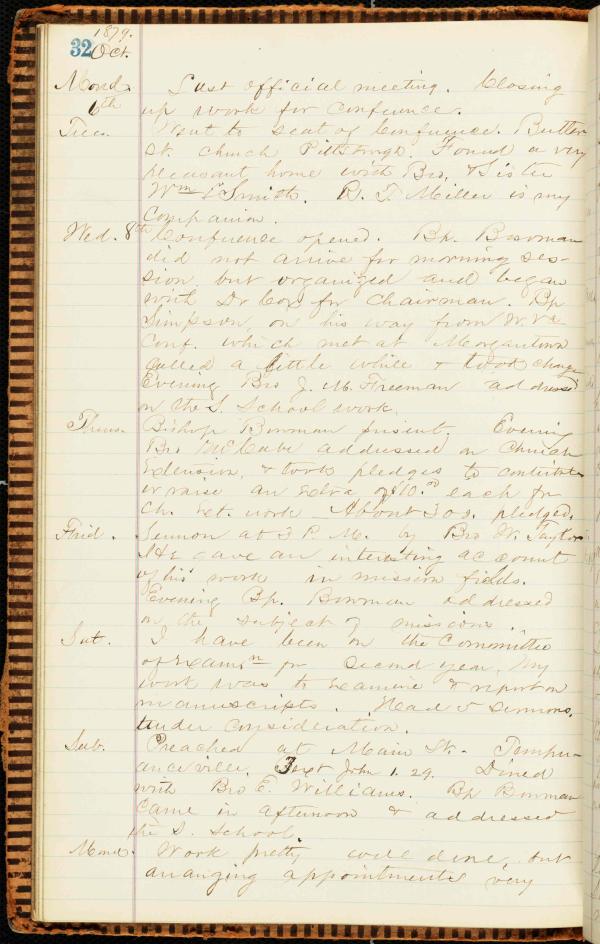 1879.
32 Oct.
Mond. Last official meeting. Closing
6th up work for Conference.
Tues. Went to seat of Conference. Butler
St. church Pittsburgh. Found a very
pleasant home with Bro. & Sister
Wm Smith. R. T. Miller is my
Companion.
Wed. 8th Conference opened. Bp. Bowman
did not arrive for morning ses-
sion but organized and began
with Dr Cox for chairman. Bp
Simpson, on his way from W. Va
Conf. which met at Morgantown
called a little while & took charge
Evening Bro J. M. Freeman addressed
on the S. School work.
Thurs. Bishop Bowman present. Evening
Bro McCabe addressed on Church
Extension, & took pledges to contribute
or raise an extra $10.00 each for
Ch. Ext. work. About 30s. pledged.
Frid. Sermon at 3 P. M. by Bro W. Taylor
He gave an interesting account
of his work in mission fields.
Evening Bp. Bowman addressed
on the subject of missions.
Sat. I have been on the Committee
of Examn for second year. My
work was to examine & report on
manuscripts. Read 5 sermons,
under consideration.
Sab. Preached at Main St. Temper-
anceville. Text John 1. 29. Dined
with Bro E. Williams. Bp Bowman
came in afternoon & addressed
the S. School.
Mond. Work pretty well done, but
arranging appointments very